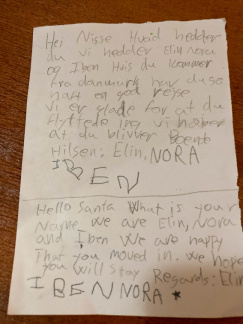 Hej Nisse Hvad hedder
du vi hedder Elin Nora
og Iben Hvis du kommer
fra danmark har du så
haft en god rejse
vi er glade for at du
flyttede vi håber
at du blivver Boende
Hilsen: Elin, NORA
IBEN
Hello Santa What is your
Name we are Elin, Nora
and Iben We are happy
That you moved in. we hope
you will stay Regards: Elin
IBEN NORA ★